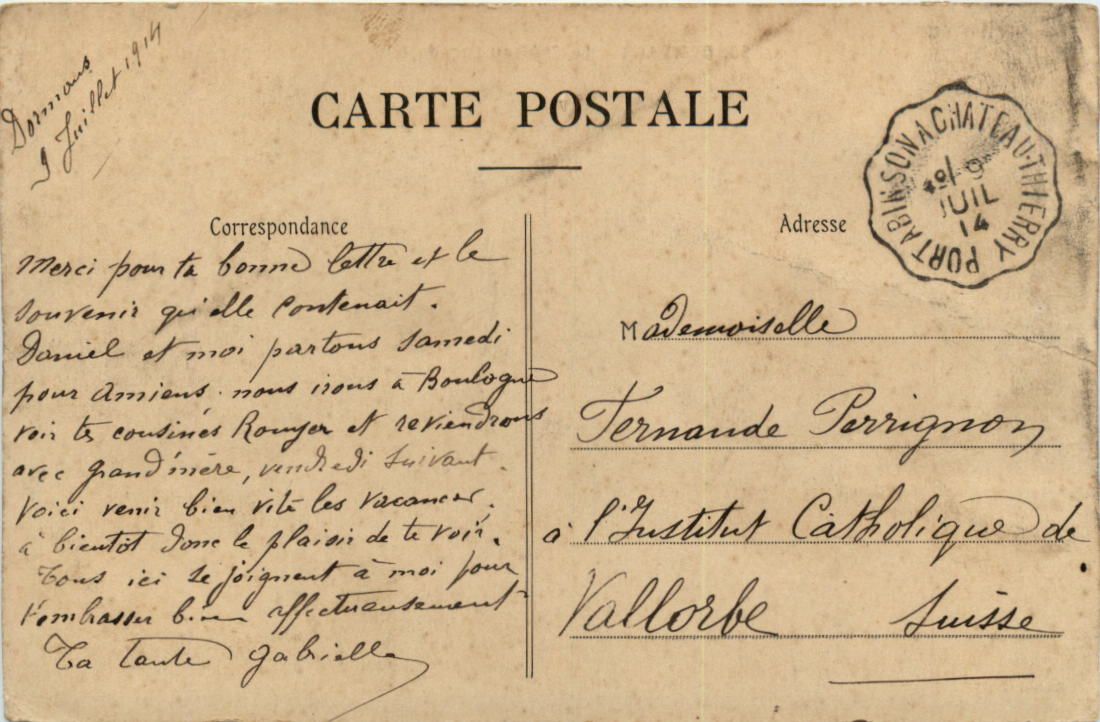 Dormans
9 Juillet 1914
CARTE POSTALE
PORT A BINSON A CHATEAU-THIERRY
9
JUIL
14
Correspondance
Merci pour ta bonne lettre et le
souvenir qu'elle contenait.
Daniel et moi partons samedi
pour Amiens. nous irons à Boulogne
voir tes cousines Rouyer et reviendrons
avec grand'mère, vendredi suivant.
Voici venir bien vite les vacances,
à bientot donc le plaisir de te voir.
Tous ici se joignent à moi pour
t'embrasser bien affectueusement
Ta tante Gabrielle
Adresse
Mademoiselle
Fernande Perrignon
à l'Institut Catholique de
Vallorbe Suisse